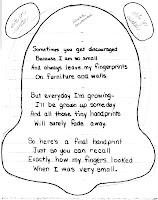 Sometimes you get discouraged
Because I am so small
And always leave my fingerprints
On furniture and walls.
But everyday I'm growing-
I'll be grown up someday
And all those tiny handprints
Will surely fade away.
So here's a final handprint
Just so you can recall
Exactly how my fingers looked
When I was very small.